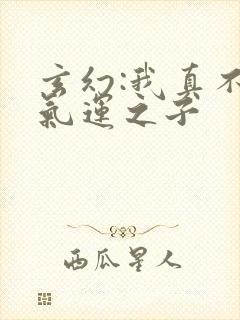 玄幻:我真不
氣運之子
西瓜星人